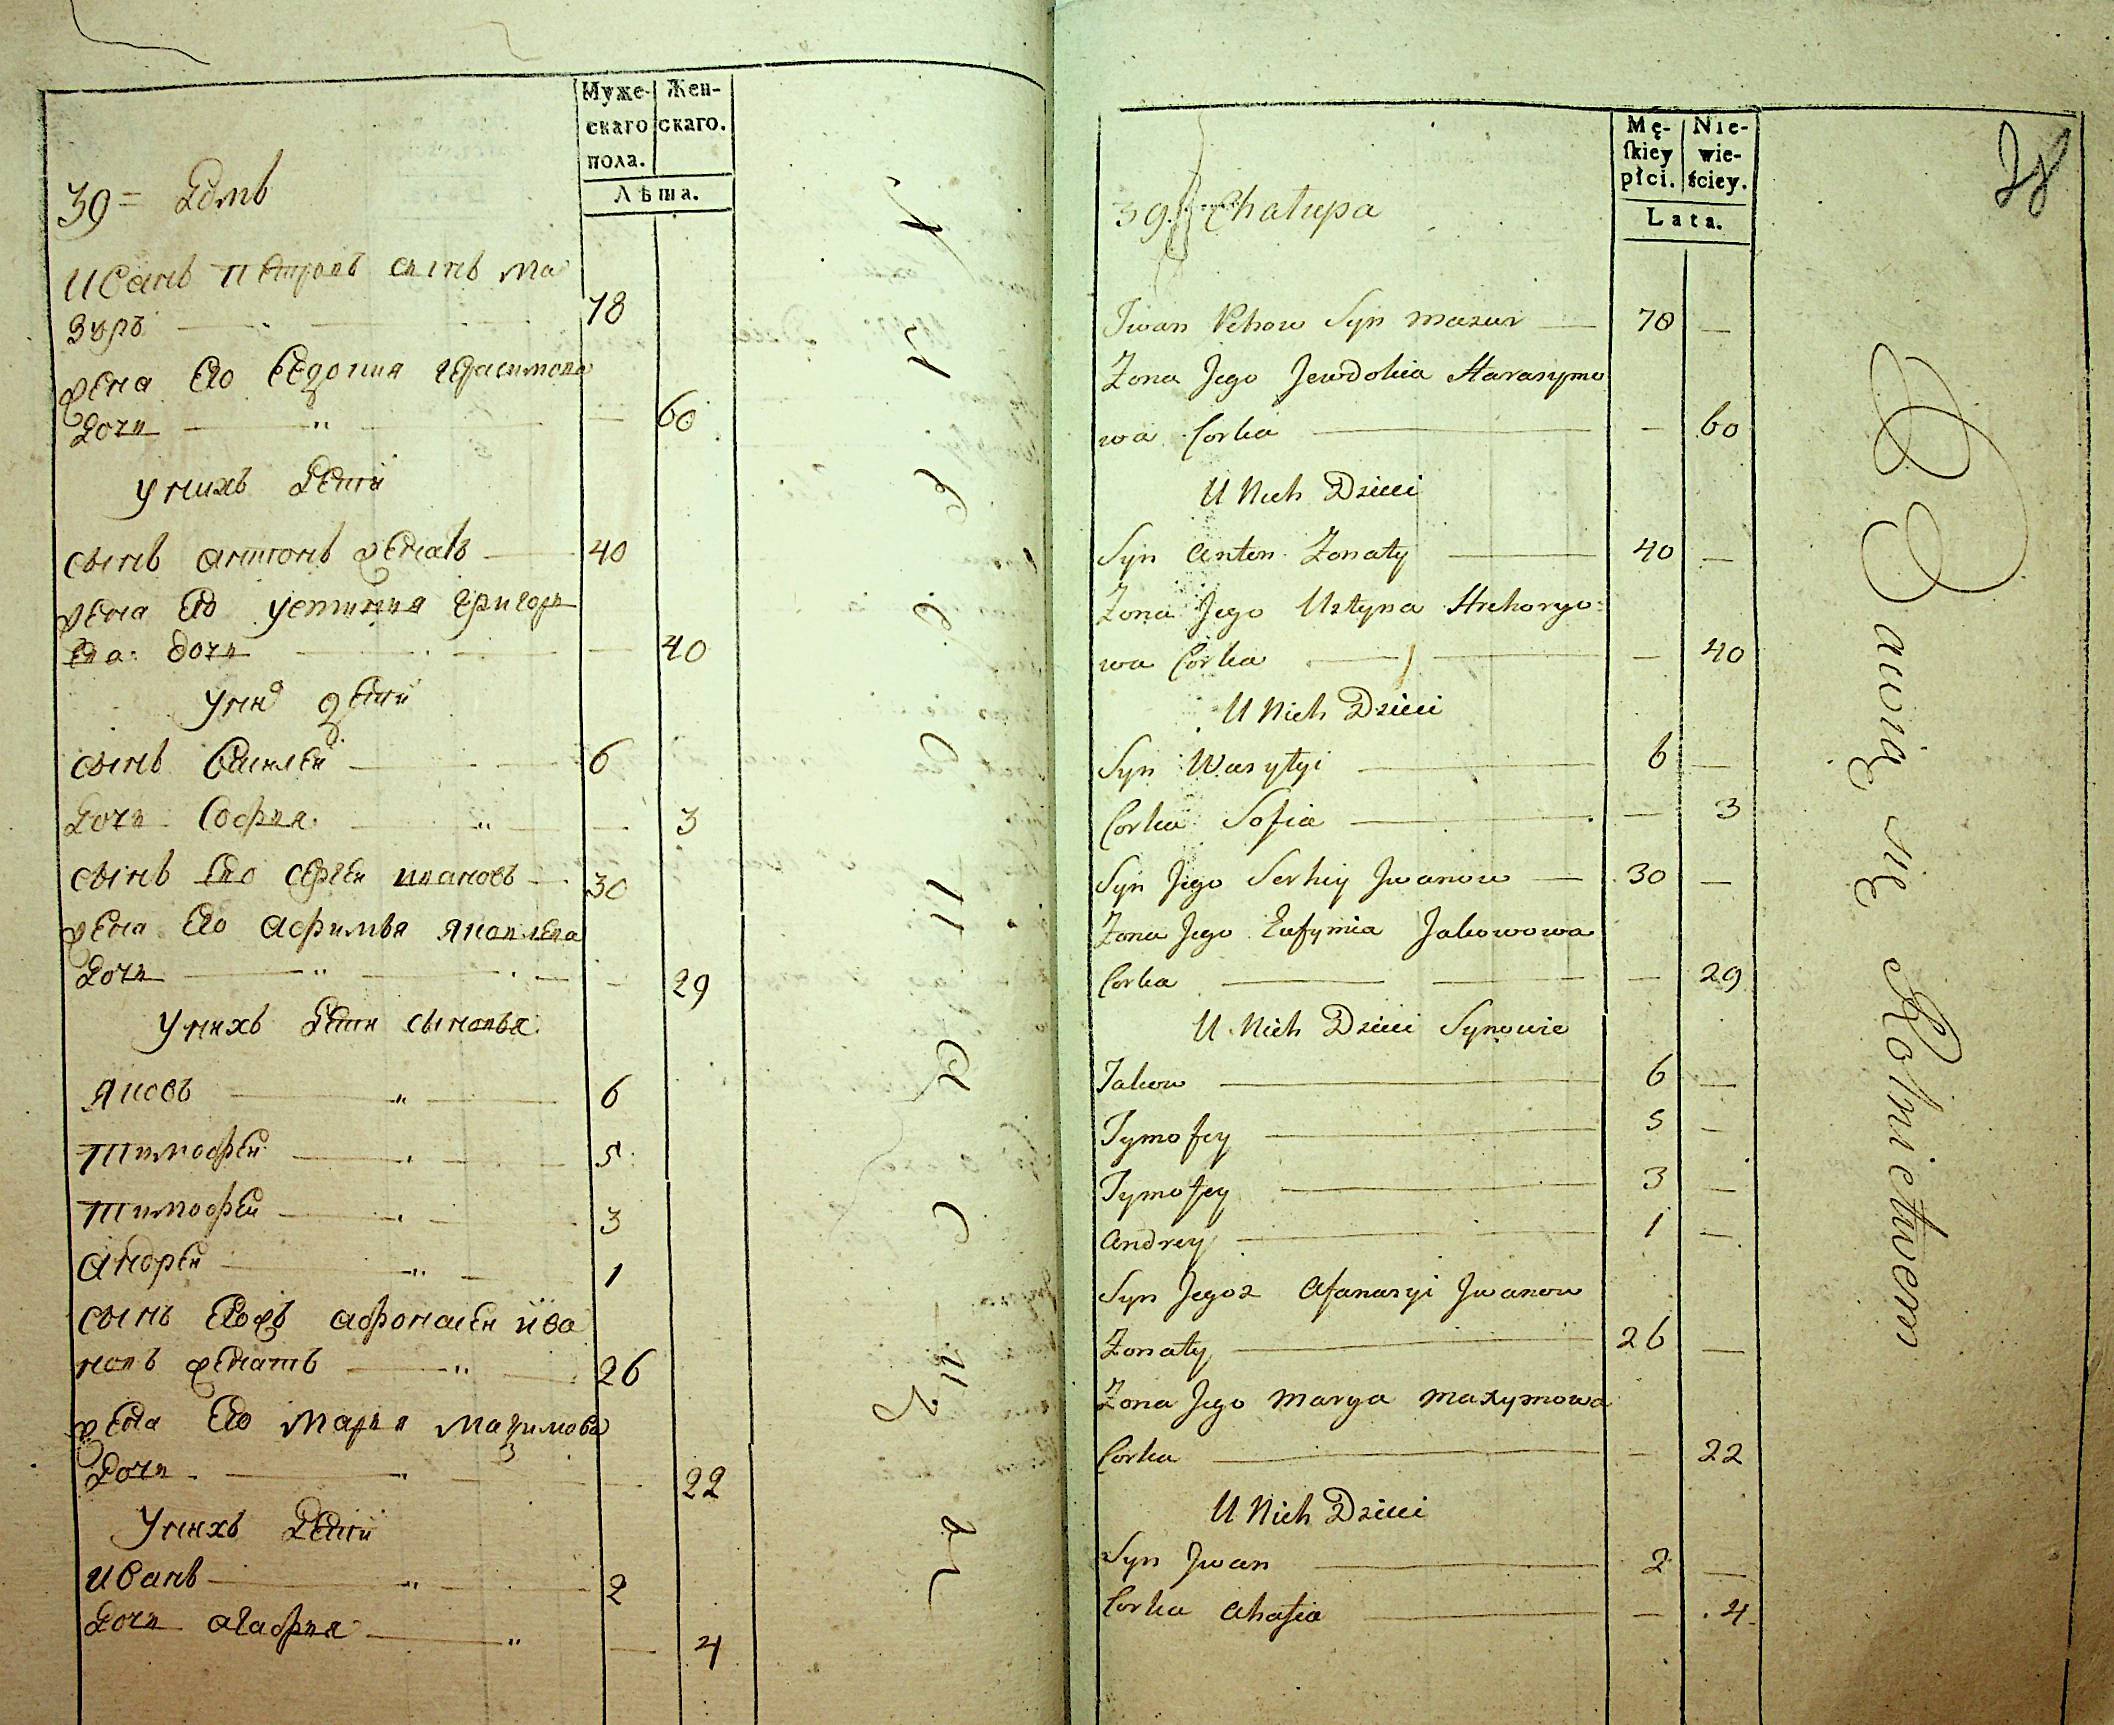 Муже-
скаго
пола.
Жен-
скаго.
Лѣта.
39 = Домъ
Иванъ Петровъ сынъ Ма
зуръ 78
жена Его Евдокия Герасимова
дочи 60
У нихъ Дѣти
сынъ антонъ женатъ 40
жена Его устиния Григорь
ева дочи 40
У них дѣти
сынъ Василей 6
Дочи София 3
сынъ Его Сергей Ивановъ 30
жена Его Афимья Яковлева
Дочи 29
У нихъ Дѣти сыновья
Яковъ 6
Тимофей 5
Тимофей 3
Андрей 1
сынъ Егожъ Афонасей Ива
новъ женатъ 26
жена Его Марья Мазимова
Дочи 22
У нихъ Дѣти
Иванъ 2
Дочи агафия 4
Mę-
skiey
płci.
Nie-
wie-
ściey.
Lata.
39 Chałupa
Jwan Petrow Syn Mazur 78
Zona Jego Jewdokia Harasymo
wa Corka 60
U Nich Dzieci
Syn Anton Zonaty 40
Zona Jego Ustyna Hrehoryo
wa Corka 40
U Nich Dzieci
Syn Wasylyi 6
Corka Sofia 3
Syn Jego Serhiy Jwanow 30
Zona Jego Eufymia Jakowowa
Corka 29
U Nich Dzieci Synowie
Jakow 6
Tymofey 5
Tymofey 3
Andrey 1
Syn Jegoz Afanasyi Jwanow
Zonaty 26
Zona Jego Marya Maxymowa
Corka 22
U Nich Dzieci
Syn Jwan 2
Corka Ahafia 4
Bawią się Rolnictwem